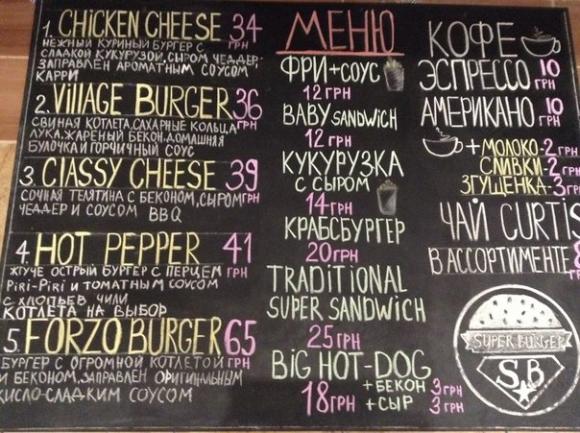 1. CHICKEN CHEESE 34 ГРН
НЕЖНЫЙ КУРИНЫЙ БУРГЕР С
СЛАДКОЙ КУКУРУЗОЙ, СЫРОМ ЧЕДДЕР,
ЗАПРАВЛЕН АРОМАТНЫМ СОУСОМ
КАРРИ
2. VILLAGE BURGER 36 ГРН
СВИНАЯ КОТЛЕТА, САХАРНЫЕ КОЛЬЦА
ЛУКА, ЖАРЕНЫЙ БЕКОН, ДОМАШНЯЯ
БУЛОЧКА И ГОРЧИЧНЫЙ СОУС
3. CLASSY CHEESE 39 ГРН
СОЧНАЯ ТЕЛЯТИНА С БЕКОНОМ, СЫРОМ
ЧЕДДЕР И СОУСОМ BBQ
4. HOT PEPPER 41 ГРН
ЖГУЧЕ ОСТРЫЙ БУРГЕР С ПЕРЦЕМ
PIRI-PIRI И ТОМАТНЫМ СОУСОМ
С ХЛОПЬЕВ ЧИЛИ
КОТЛЕТА НА ВЫБОР
5. FORZO BURGER 65 ГРН
БУРГЕР С ОГРОМНОЙ КОТЛЕТОЙ
И БЕКОНОМ, ЗАПРАВЛЕН ОРИГИНАЛЬНЫМ
КИСЛО-СЛАДКИМ СОУСОМ
МЕНЮ
ФРИ+СОУС
12 ГРН
BABY SANDWICH
12 ГРН
КУКУРУЗКА
С СЫРОМ
14 ГРН
КРАБСБУРГЕР
20 ГРН
TRADITIONAL
SUPER SANDWICH
25 ГРН
BIG HOT-DOG
18 ГРН
+БЕКОН 3 ГРН
+СЫР 3 ГРН
КОФЕ
ЭСПРЕССО 10 ГРН
АМЕРИКАНО 10 ГРН
+ МОЛОКО-2 ГРН
СЛИВКИ-2 ГРН
ЗГУЩЕНКА-3 ГРН
ЧАЙ CURTIS
В АССОРТИМЕНТЕ
SUPER BURGER
S.B